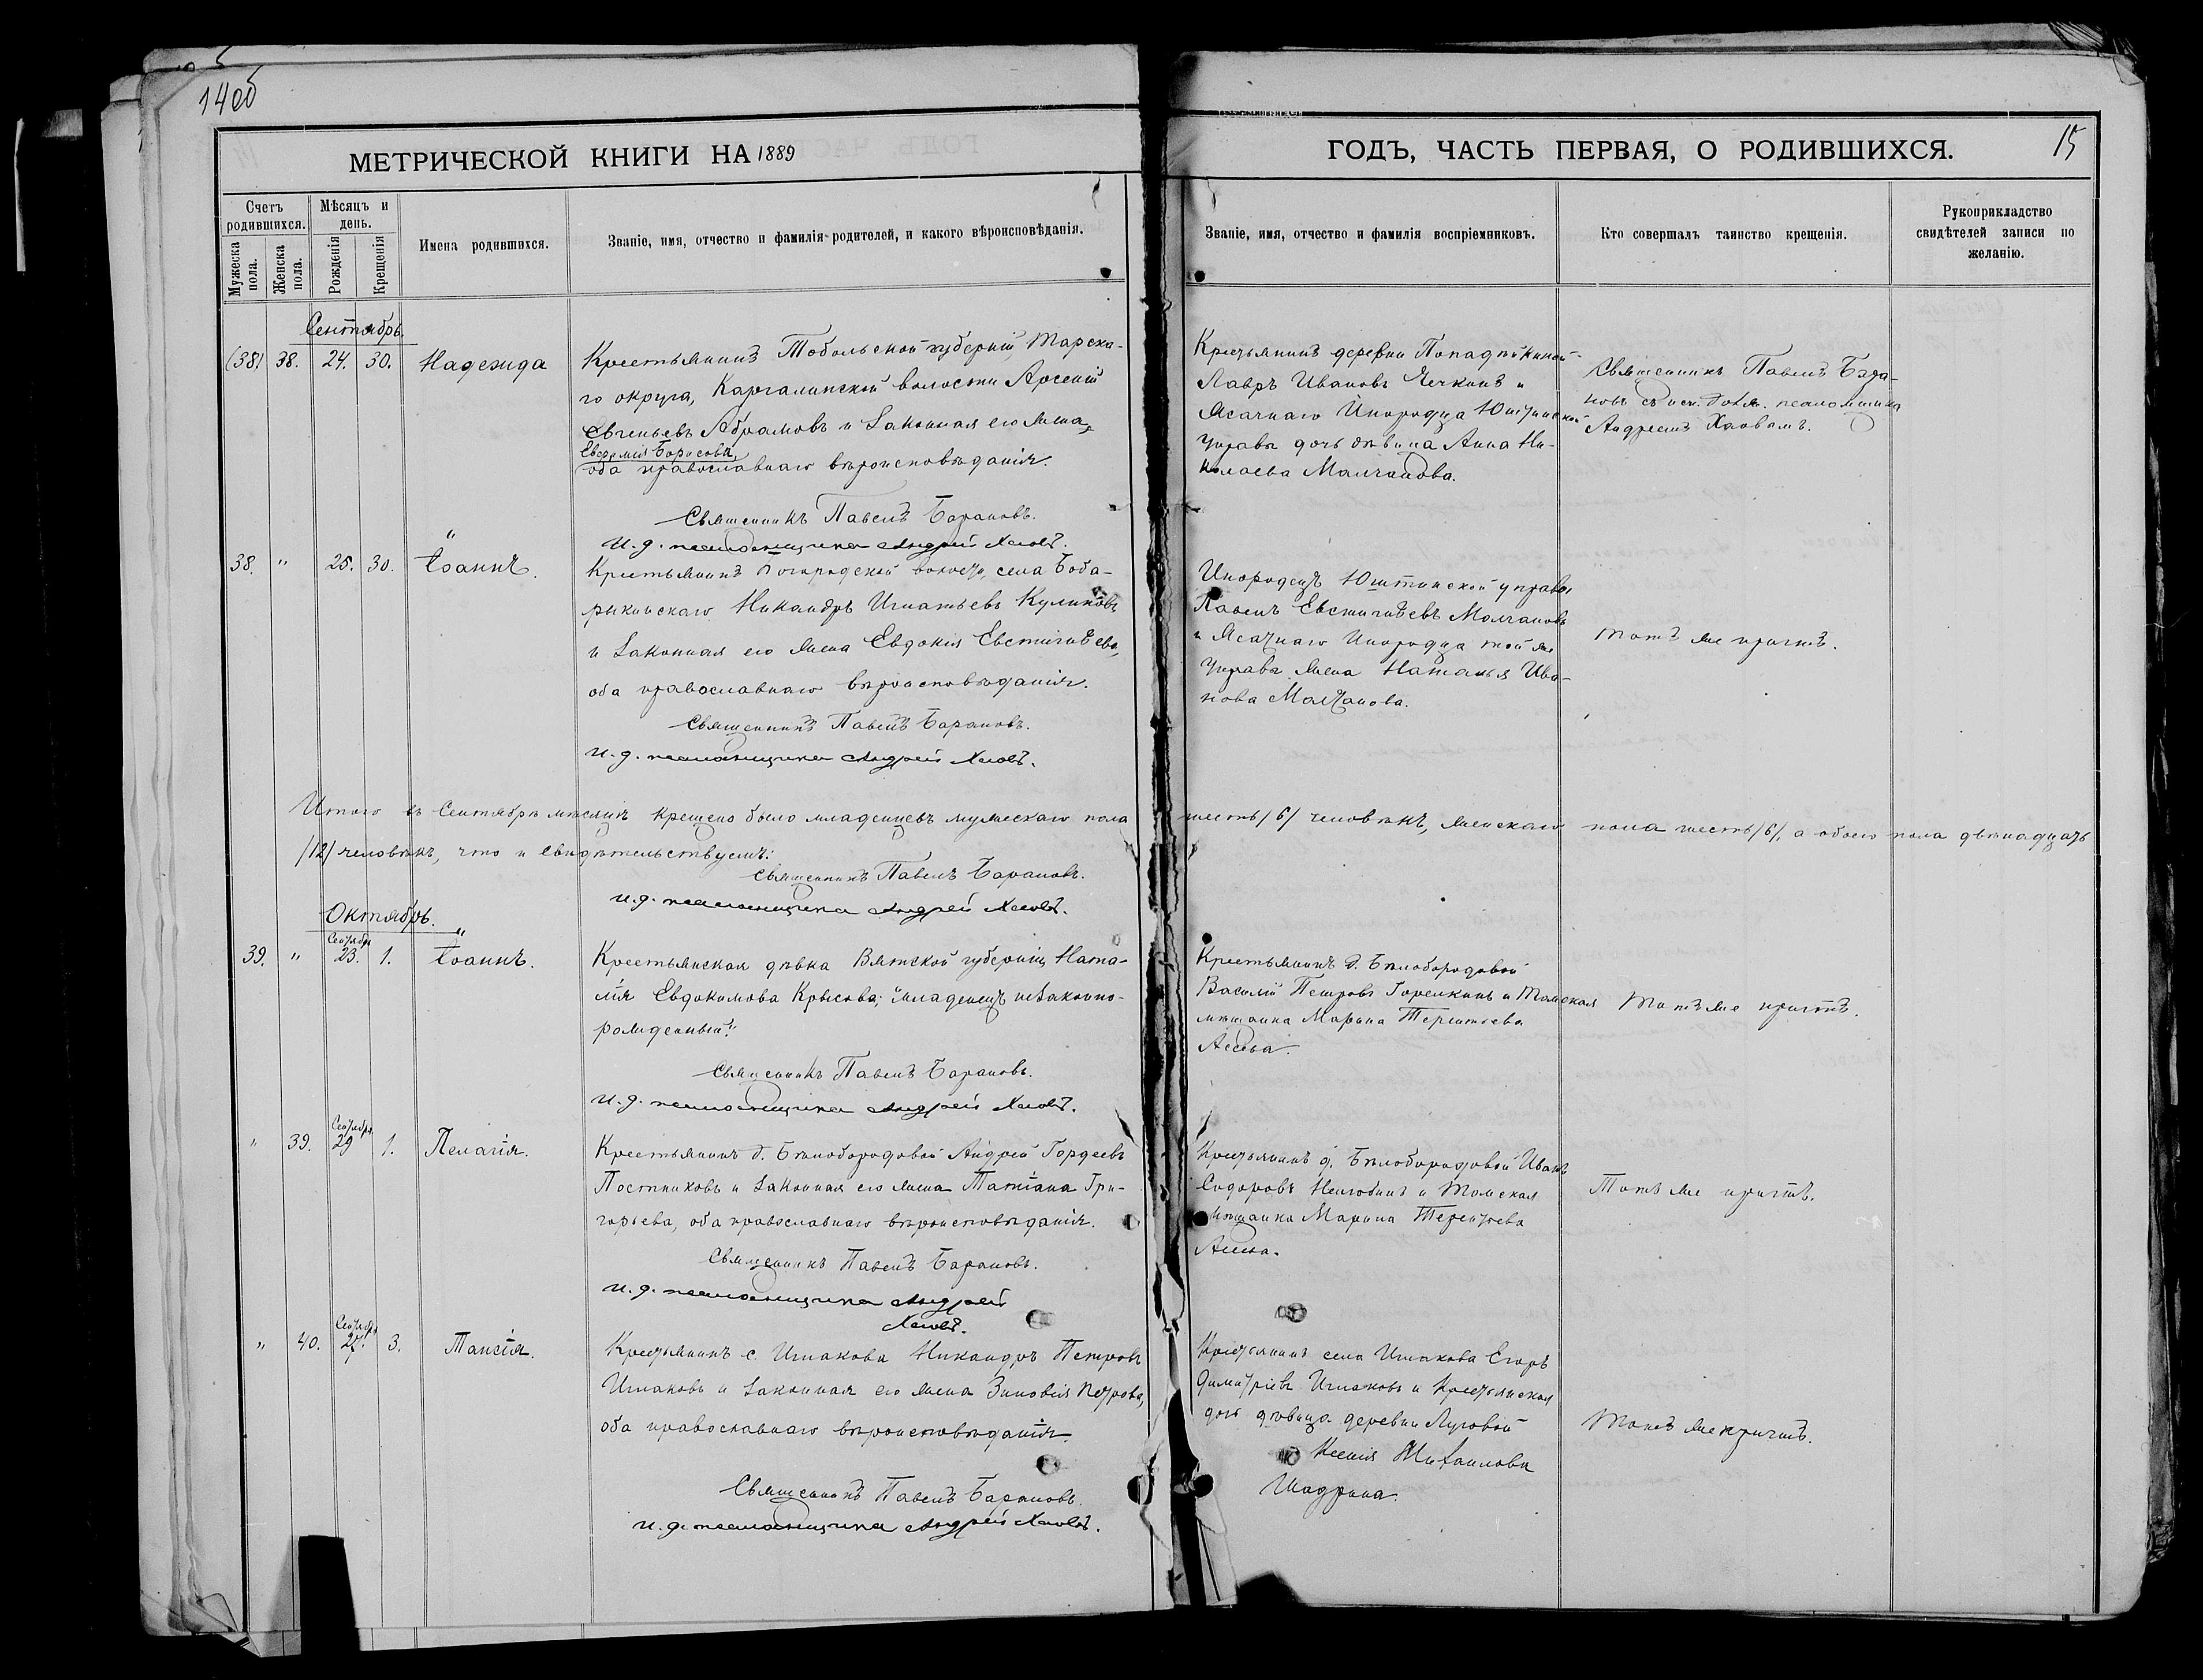 140б
МЕТРИЧЕСКОЙ КНИГИ НА 1889
ГОДЪ, ЧАСТЬ ПЕРВАЯ, О РОДИВШИХСЯ.
15
Счетъ родившихся.
Мужеска пола.
Женска пола.
Мѣсяцъ и день.
Рожденія
Крещенія
Имена родившихся.
Званіе, имя, отчество и фамилія родителей, и какого вѣроисповѣданія.
Званіе, имя, отчество и фамилія воспріемниковъ.
Кто совершалъ таинство крещенія.
Рукоприкладство свидѣтелей записи по желанію.
Сентябрь.
(38) 38. 24. 30. Надежда
Крестьянинъ Тобольской губерніи, Тарска-
го округа, Каргалинской волости Арсеній
Евгеньевъ Абрамовъ и законная его жена,
Борисова,
оба православнаго вѣроисповѣданія.
Священникъ Павелъ Барановъ.
И. д. псаломщика Андрей
Крестьянинъ деревни
Лавръ Ивановъ и
Ясачнаго Инородца
управы дочь дѣвица Анна Ни-
колаева Молчанова.
Священникъ Павелъ Бара-
новъ съ исп. долж. псаломщика
Андреемъ
38. " 25. 30. Іоаннъ.
Крестьянинъ волости, села Боба-
рыкинскаго Никандръ Игнатьевъ Куликовъ
и законная его жена Евдокія Евстигнѣева,
оба православнаго вѣроисповѣданія.
Священникъ Павелъ Барановъ.
И. д. псаломщика Андрей
Инородецъ управы
Павелъ Евстигнѣевъ Молчановъ
и Ясачнаго Инородца той же
управы жена Наталья Ива-
нова Молчанова.
Тотъ же причтъ.
Итого въ Сентябрѣ мѣсяцѣ крещено было младенцевъ мужескаго пола шесть /6/ человѣкъ, женскаго пола шесть /6/, а обоего пола двѣнадцать
/12/ человѣкъ, что и свидѣтельствуемъ:
Священникъ Павелъ Барановъ.
И. д. псаломщика Андрей
Октябрь.
39. " Сентября 23. 1. Іоаннъ.
Крестьянская дѣвка Вятской губерніи Ната-
лія Евдокимова Крысова; "младенецъ незаконно-
рожденный".
Священникъ Павелъ Барановъ.
И. д. псаломщика Андрей
Крестьянинъ д. Бѣлобородовой
Василій Петровъ Горелкинъ и Томская
мѣщанка Марина Терентьева
Тотъ же причтъ.
" 39. Сентября 29 1. Пелагія.
Крестьянинъ д. Бѣлобородовой Андрей Гордеевъ
Постниковъ и законная его жена Татіана Гри-
горьева, оба православнаго вѣроисповѣданія.
Священникъ Павелъ Барановъ.
И. д. псаломщика Андрей
Крестьянинъ д. Бѣлобородовой Иванъ
Сидоровъ и Томская
мѣщанка Марина Терентьева
Тотъ же причтъ.
" 40. Сентября 27. 3. Таисія.
Крестьянинъ с. Ишакова Никандръ Петровъ
Ишаковъ и законная его жена Зиновія Петрова,
оба православнаго вѣроисповѣданія.
Священникъ Павелъ Барановъ.
И. д. псаломщика Андрей
Крестьянинъ села Ишакова Егоръ
Димитріевъ Ишаковъ и Крестьянская
дочь дѣвица деревни Луговой
Ксенія Михаилова
Шадрина.
Тотъ же причтъ.